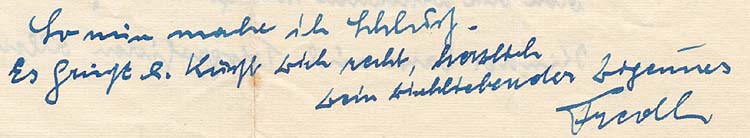 So nun mache ich Schluß.
Es grüßt u. küßt Dich recht, herzlich
Dein Dichliebender
Fredl